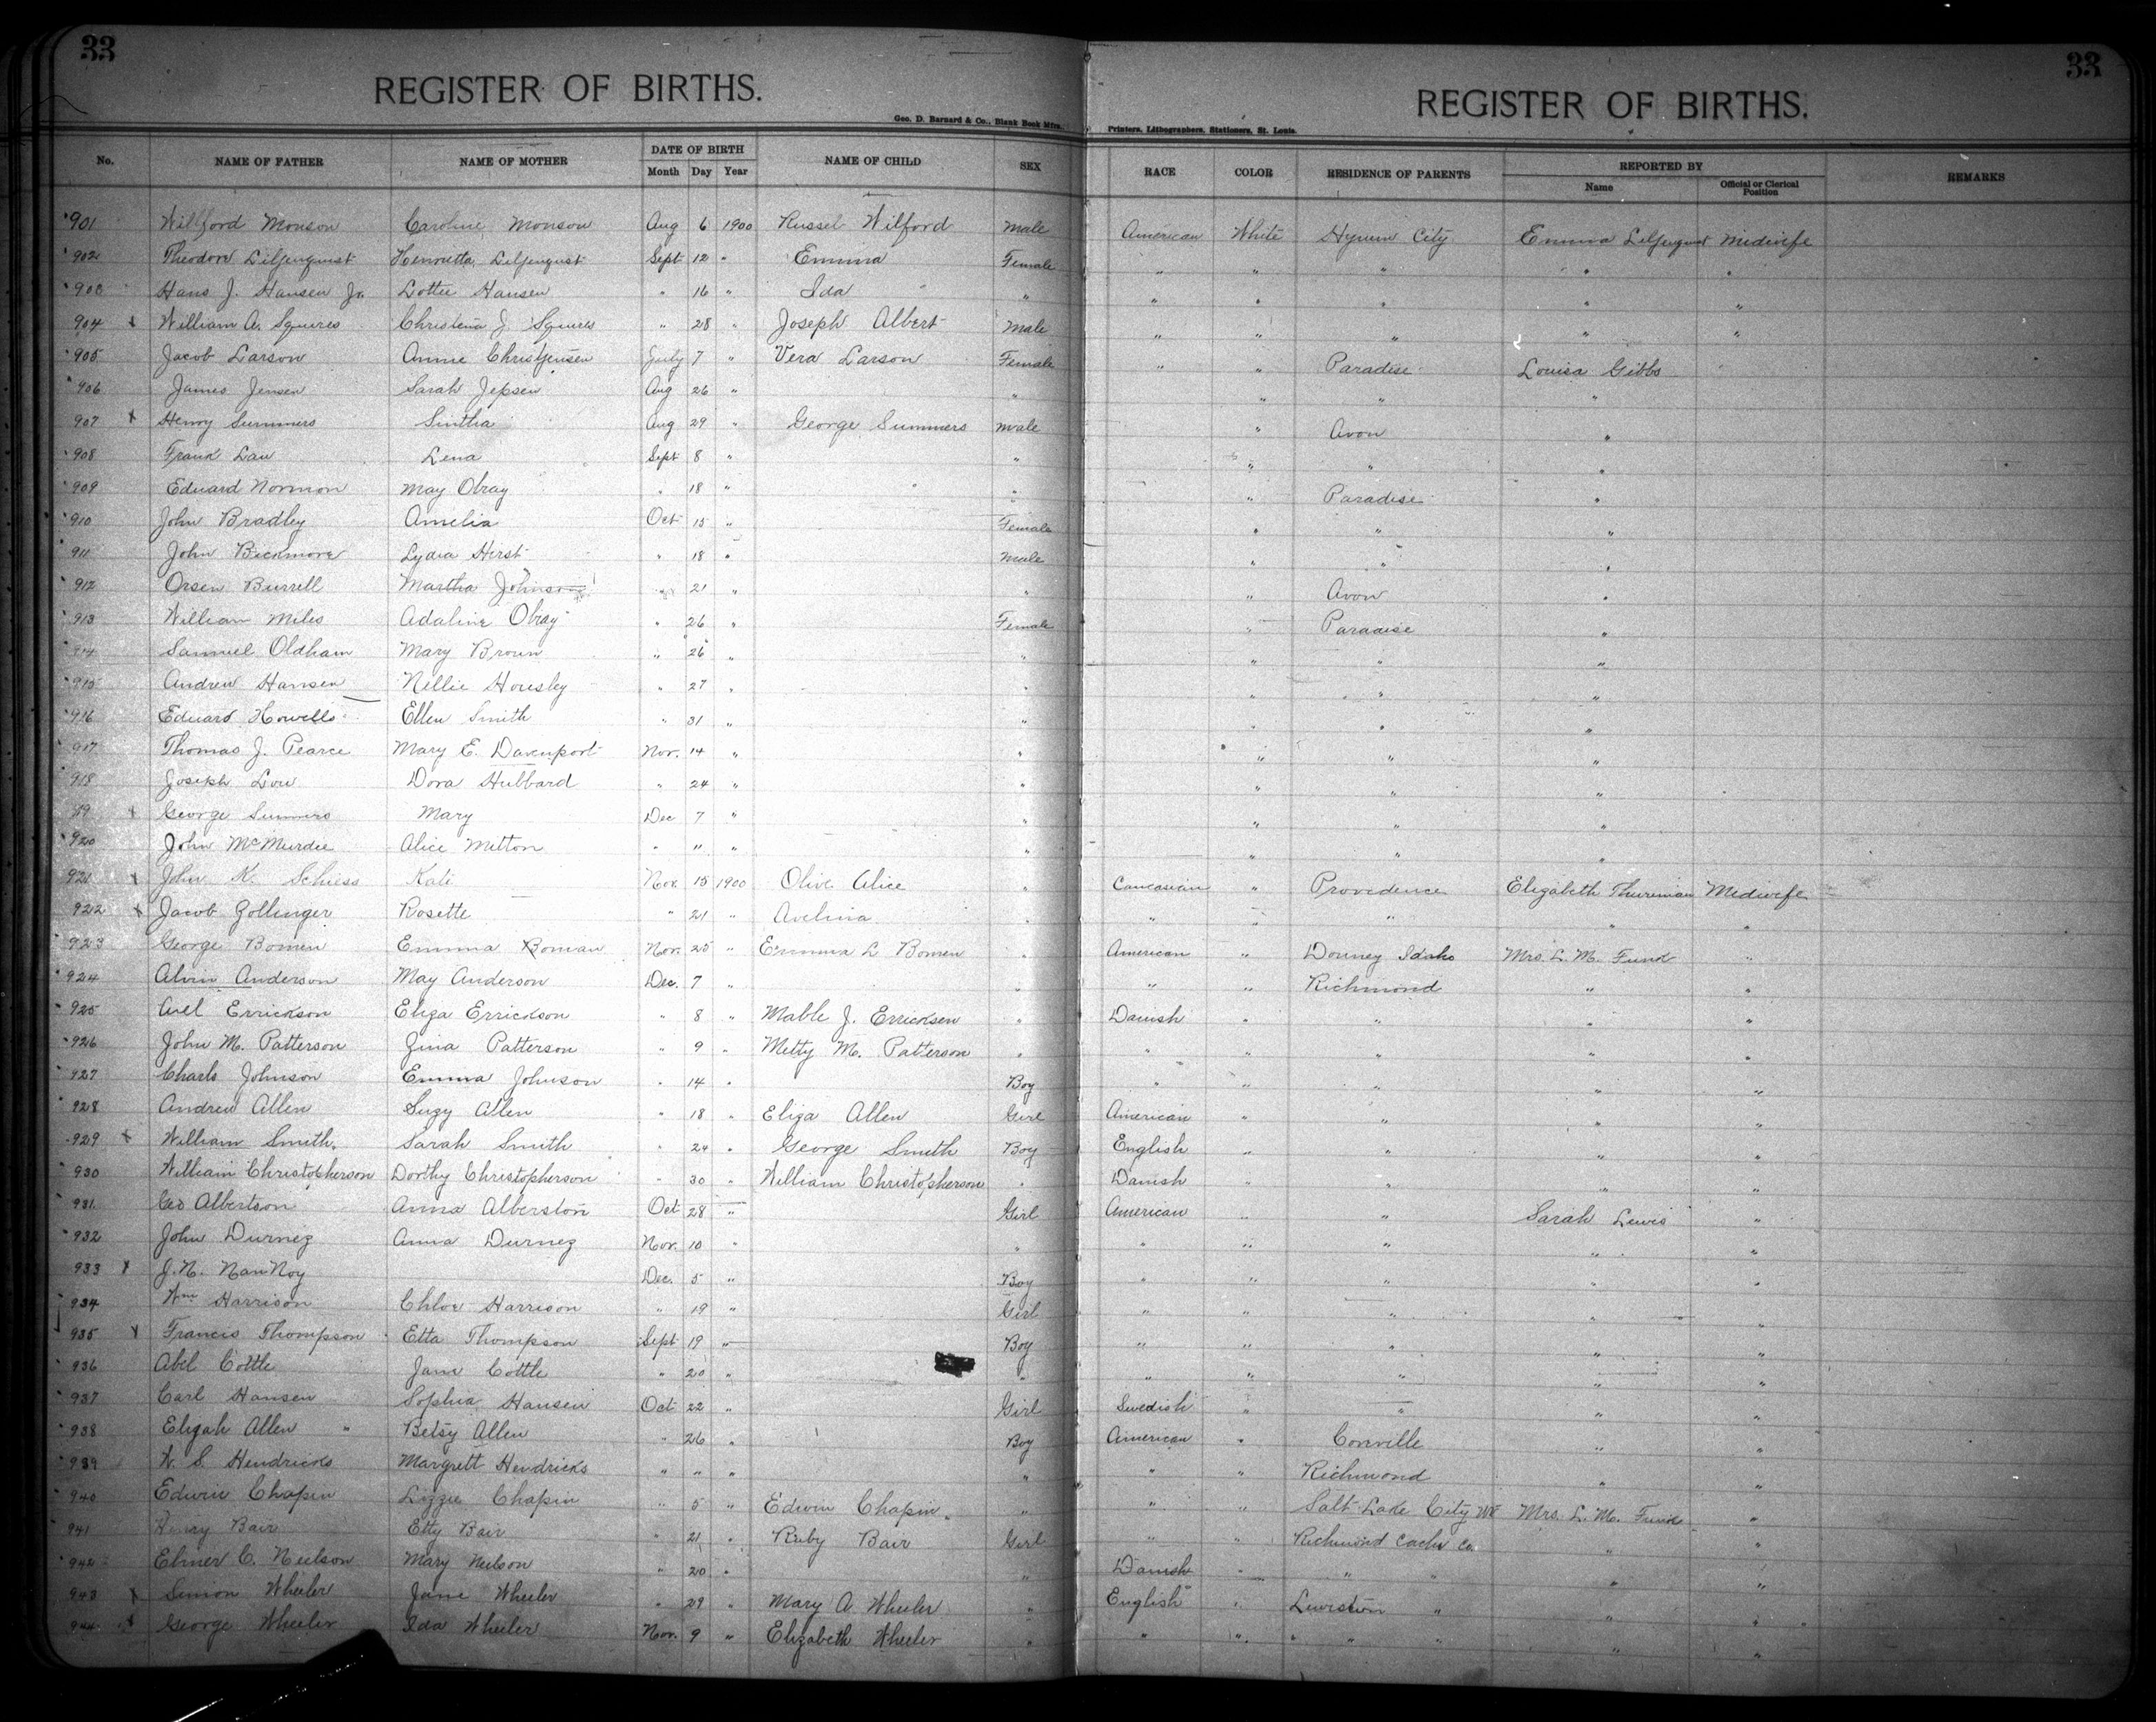 33 33
REGISTER OF BIRTHS. REGISTER OF BIRTHS.
Geo. D. Barnard & Co., Blank Book Mfrs., Printers, Lithographers, Stationers, St. Louis.
No. NAME OF FATHER NAME OF MOTHER DATE OF BIRTH Month Day Year NAME OF CHILD SEX RACE COLOR RESIDENCE OF PARENTS REPORTED BY Name Official or Clerical Position REMARKS
901 Willford Monson Caroline Monson Aug 6 1900 Russel Wilford Male American White Hyrum City Emma Liljenquist Midwife
902 Theodore Liljenquist Henrietta Liljenquist Sept 12 " Emma Female " " " " "
903 Hans J. Hansen Jr. Lottie Hansen " 16 " Ida " " " " " "
904 x William A. Squires Christena J. Squires " 28 " Joseph Albert Male " " " " "
905 Jacob Larson Annie Christjensen July 7 " Vera Larson Female " " Paradise Louisa Gibbs
906 James Jensen Sarah Jepsen Aug 26 " " " " "
907 x Henry Summers Sintha Aug 29 " George Summers Male " Avon "
908 Frank Law Lena Sept 8 " " " " "
909 Eduard Norman May Obray " 18 " " " Paradise "
910 John Bradley Amelia Oct 15 " Female " " "
911 John Bickmore Lydia Hirst " 18 " Male " " "
912 Orsen Burrell Martha Johnson " 21 " " " Avon "
913 William Miles Adaline Obray " 26 " Female " Paradise "
914 Samuel Oldham Mary Brown " 26 " " " " "
915 Andrew Hansen Nellie Housley " 27 " " " " "
916 Eduard Howells Ellen Smith " 31 " " " " "
917 Thomas J. Pearce Mary E. Davenport Nov. 14 " " " " "
918 Joseph Low Dora Hubbard " 24 " " " " "
919 x George Summers Mary Dec 7 " " " " "
920 John McMurdie Alice Mitton " " " " " " "
921 x John K. Schiess Kate Nov. 15 1900 Olive Alice " Caucasian " Providence Elizabeth Thureman Midwife
922 x Jacob Zollinger Rosette " 21 " Avelina " " " " " "
923 George Bomen Emma Boman Nov. 25 " Emma L Bomen " American " Downey Idaho Mrs. L. M. Funk "
924 Alvin Anderson May Anderson Dec. 7 " " " " Richmond " "
925 Axel Errickson Eliza Errickson " 8 " Mable J. Erricksen " Danish " " " "
926 John M. Patterson Zina Patterson " 9 " Metty M. Patterson " " " " " "
927 Charls Johnson Emma Johnson " 14 " Boy " " " " "
928 Andrew Allen Suzy Allen " 18 " Eliza Allen Girl American " " " "
929 x William Smith Sarah Smith " 24 " George Smith Boy English " " " "
930 William Christopherson Dorthy Christopherson " 30 " William Christopherson " Danish " " " "
931 Geo Albertson Anna Alberston Oct 28 " Girl American " " Sarah Lewis "
932 John Durnez Anna Durnez Nov. 10 " " " " " " "
933 x J. N. VanNoy Dec. 5 " Boy " " " " "
934 Wm Harrison Chloe Harrison " 19 " Girl " " " " "
935 x Francis Thompson Etta Thompson Sept 19 " Boy " " " " "
936 Abel Cottle Jane Cottle " 20 " " " " " " "
937 Carl Hansen Sophia Hansen Oct 22 " Girl Swedish " " " "
938 Elizah Allen " Betsy Allen " 26 " Boy American " Coveville " "
939 W. S. Hendricks Margrett Hendricks " " " " " " Richmond " "
940 Edwin Chapin Lizzie Chapin " 5 " Edwin Chapin " " " Salt Lake City Mrs. L. M. Funk "
941 Henry Bair Etty Bair " 21 " Ruby Bair Girl " " Richmond Cache Co. " "
942 Elmer C. Neilson Mary Neilson " 20 " " Danish " " " " "
943 x Simon Wheeler Jane Wheeler " 29 " Mary A. Wheeler " English " Lewiston " " "
944 x George Wheeler Ida Wheeler Nov. 9 " Elizabeth Wheeler " " " " " " "